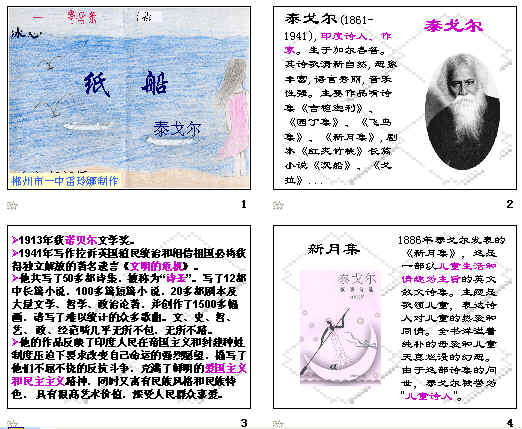 冰心
纸 船
泰戈尔
郴州市一中雷玲娜制作
1
泰戈尔(1861-
1941),印度诗人、作
家。生于加尔各答。
其诗歌清新自然,想象
丰富,语言秀丽,音乐
性强。主要作品有诗
集《吉檀迦利》、
《园丁集》、《飞鸟
集》、《新月集》,剧
本《红夹竹桃》长篇
小说《沉船》、《戈
拉》...
泰戈尔
2
1913年获诺贝尔文学奖。
1941年写作控诉英国殖民统治和相信祖国必将获
得独立解放的著名遗言《文明的危机》。
他共写了50多部诗集,被称为“诗圣”。写了12部
中长篇小说,100多篇短篇小说,20多部剧本及
大量文学、哲学、政治论著,并创作了1500多幅
画,谱写了难以统计的众多歌曲。文、史、哲、
艺、政、经范畴几乎无所不包,无所不精。
他的作品反映了印度人民在帝国主义和封建种姓
制度压迫下要求改变自己命运的强烈愿望,描写了
他们不屈不挠的反抗斗争,充满了鲜明的爱国主义
和民主主义精神,同时又富有民族风格和民族特
色,具有很高艺术价值,深受人民群众喜爱。
3
新月集
泰戈尔
1886年泰戈尔发表的
《新月集》,这是
一部以儿童生活和
情趣为主旨的英文
散文诗集。主题是
歌颂儿童,表达诗
人对儿童的热爱和
同情。全书洋溢着
纯朴的母爱和儿童
天真烂漫的幻想。
由于这部诗集的问
世,泰戈尔被誉为
"儿童诗人"。
4